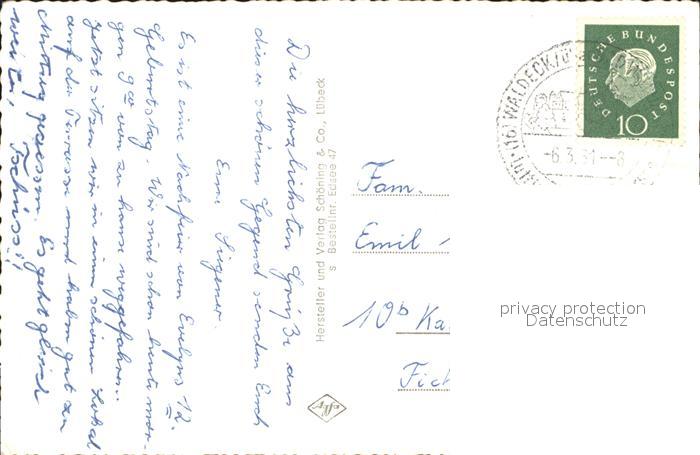 Die herzlichsten Grüße aus
dieser schönen Gegend senden Euch
Eure Siegener.
Es ist eine Nachfeier von Evelyns 12.
Geburtstag. Wir sind schon heute mor-
gen 9ºº von zu hause weggefahren.
Jetzt sitzen wir in einem schönen Lokal
auf der Terrasse und haben gut zu
Mittag gegessen. Es geht gleich
weiter, Tschüss!!
Hersteller und Verlag Schöning & Co., Lübeck
s Bestellnr. Edsee 47
Fam.
Emil
10b Ka
Fich
DEUTSCHE BUNDESPOST
10
(16) WALDECK
-6.3.61--8
privacy protection
Datenschutz